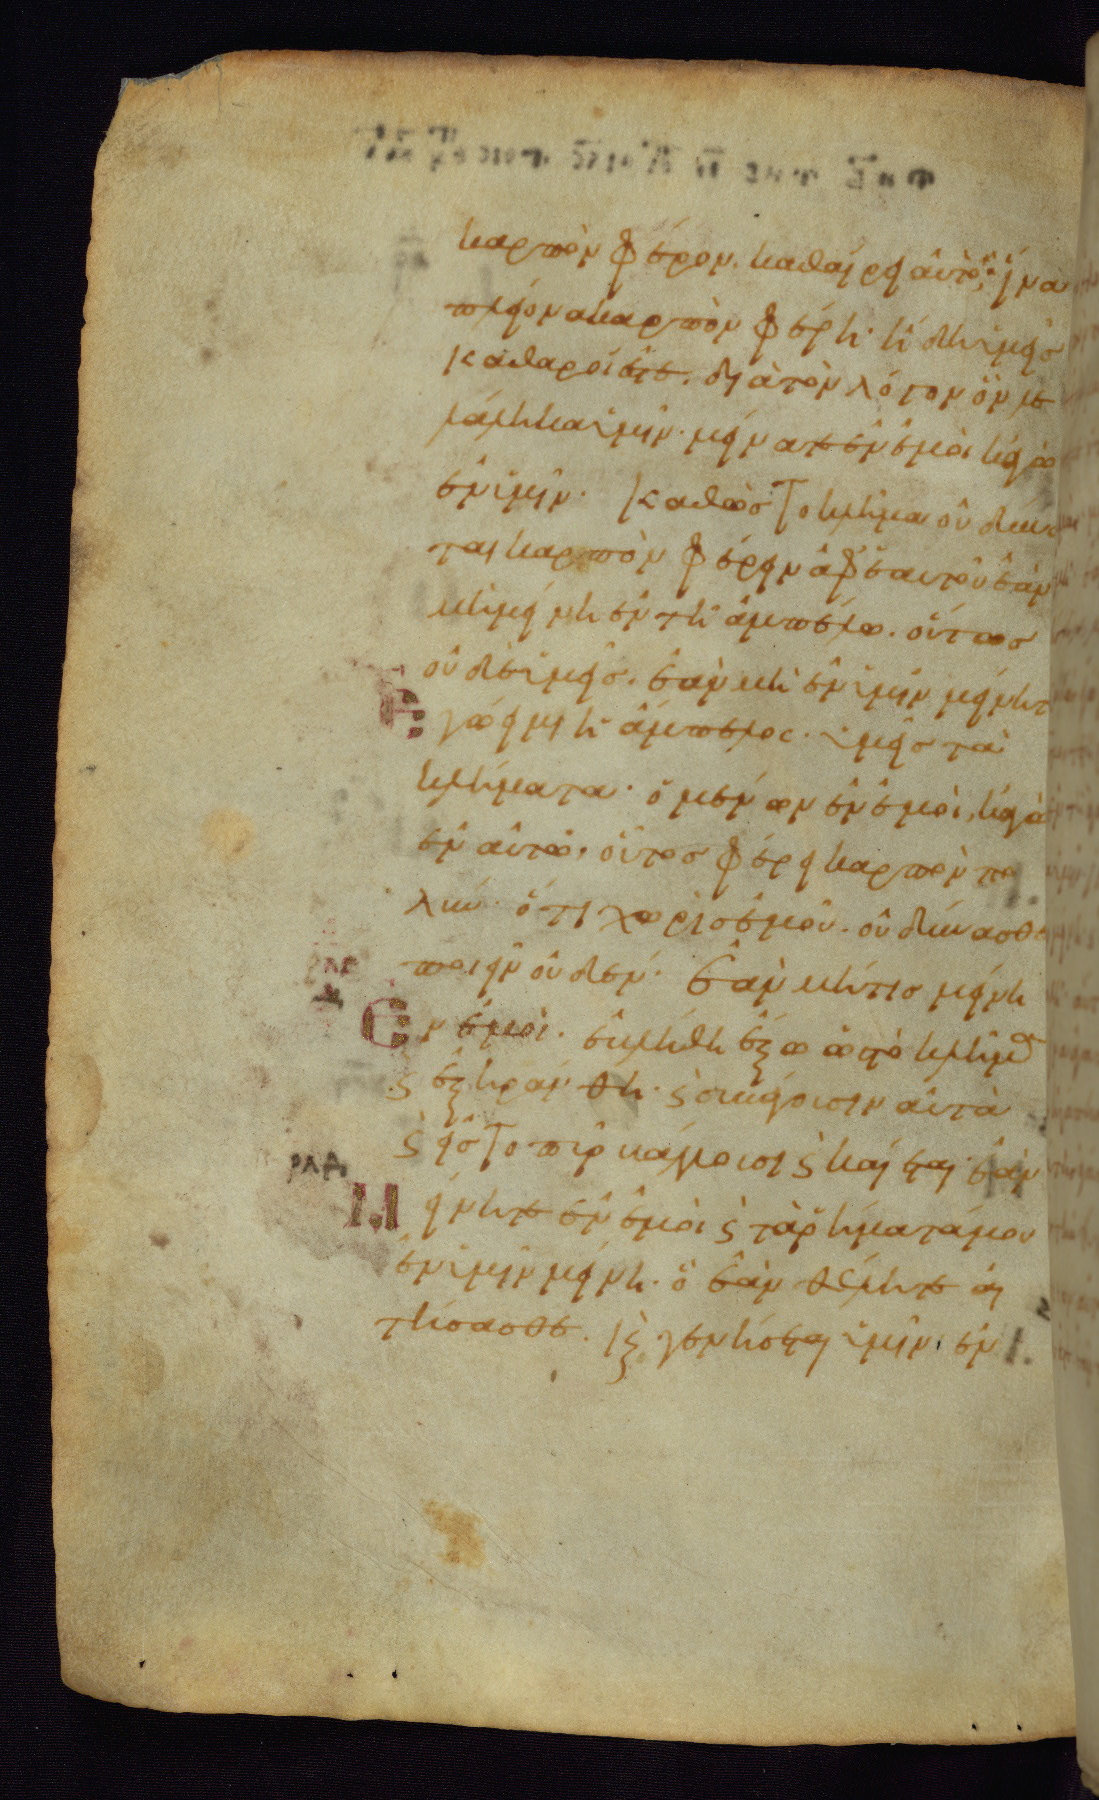 καρπὸν φέρον. καθαίρει αὐτό· ἵνα
πλείονα καρπὸν φέρη· ἤδη ὑμεῖς
καθαροί ἐστε. διὰ τὸν λόγον ὃν λε
λάληκα ὑμῖν· μείνατε ἐν ἐμοὶ κἀγὼ
ἐν ὑμῖν· Καθὼς το κλῆμα οὐ δύνα
ται καρπὸν φέρειν ἀφ' ἑαυτοῦ ἐὰν
μὴ μείνη ἐν τῆ ἀμπέλω. οὕτως
οὐδὲ ὑμεῖς. ἐὰν μὴ ἐν ὑμῖν μείνητε
Ἐγώ εἰμι ἡ ἄμπελος. ὑμεῖς τὰ
κλήματα· ὁ μένων ἐν ἐμοὶ, κἀγὼ
ἐν αὐτῶ, οὗτος φέρει καρπὸν πο
λύν· ὅτι χωρὶς ἐμοῦ. οὐ δύνασθε
ποιεῖν οὐδέν· Ἐὰν μή τις μείνη
Ἐν ἐμοὶ. ἐκλήθη ἔξω ὡς τὸ κλῆμα
ϛ ἐξηράνθη· ϛ συνάγουσιν αὐτὰ
ϛ εἰς το πῦρ βάλλουσι ϛ καίεται· ἐὰν
ρλδ
Μείνητε ἐν ἐμοὶ ϛ τὰ ῥήματά μου
ἐν ὑμῖν μείνη. ὃ ἐὰν θέλητε αἰ
τήσασθε. κ γενήσεται ὑμῖν· ἐν